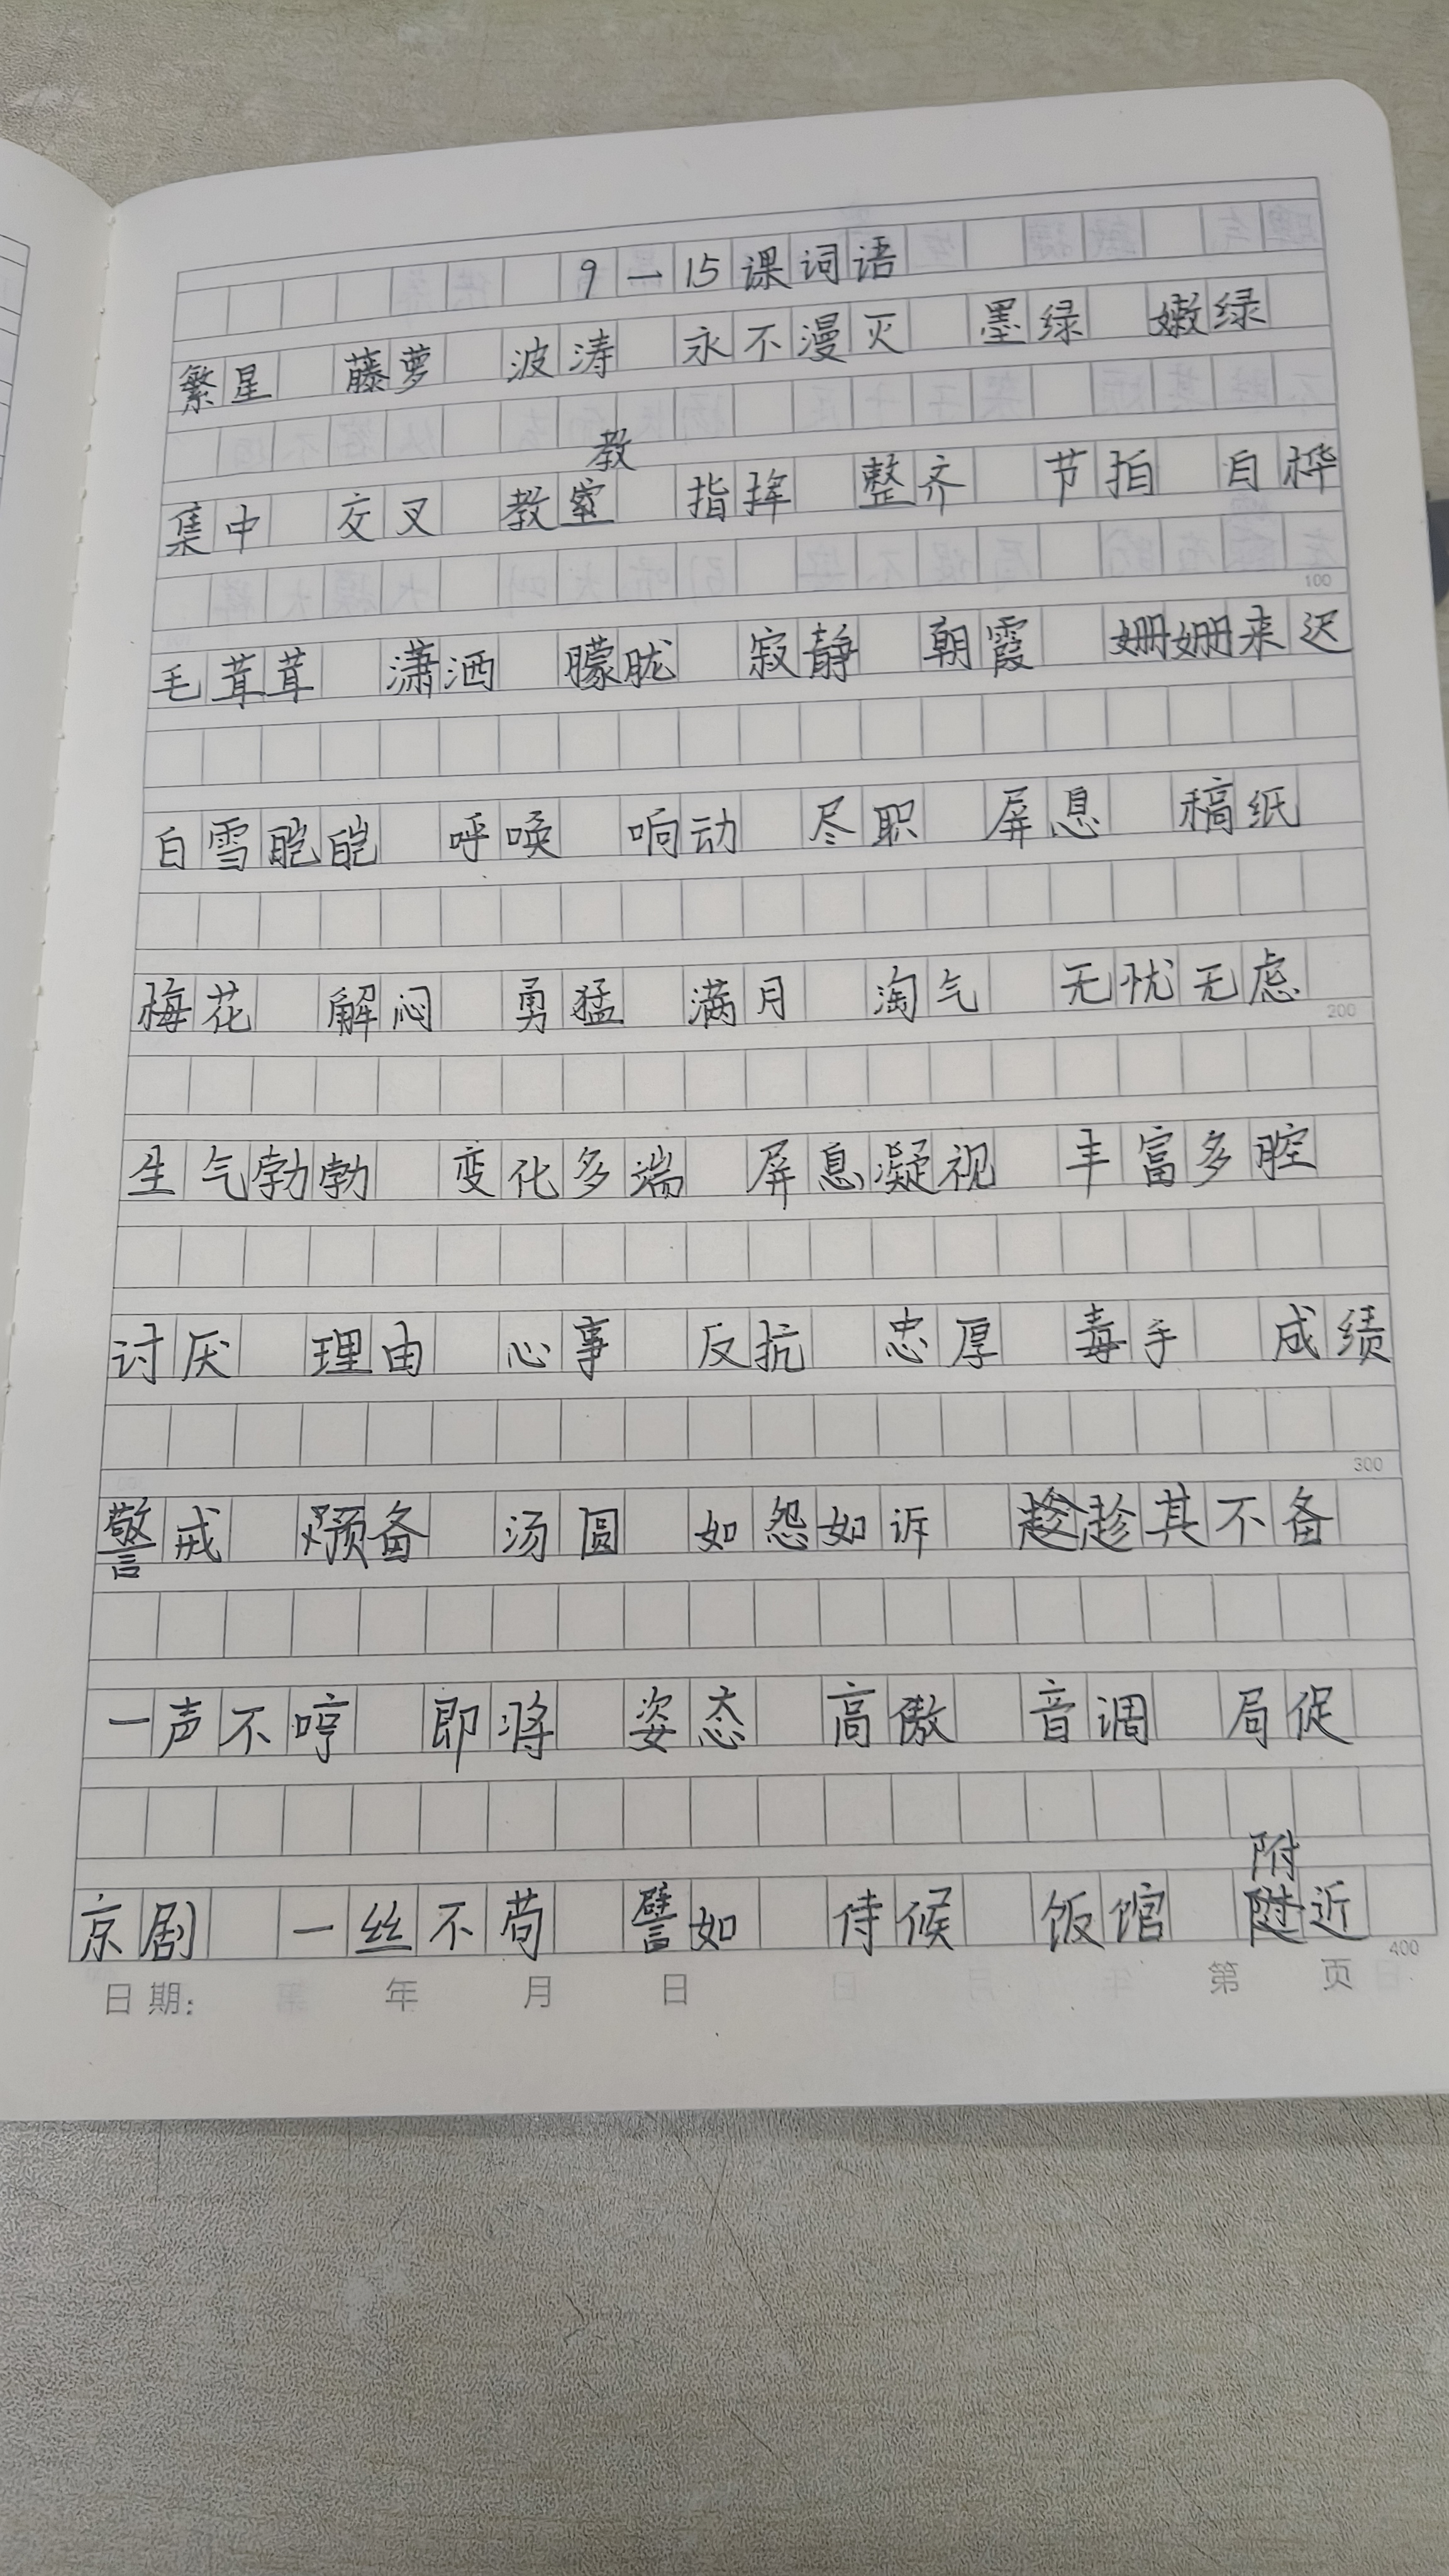 9一15课词语
繁星 藤萝 波涛 永不漫灭 墨绿 嫩绿
教
集中 交叉 教室 指挥 整齐 节拍 白桦
100
毛茸茸 潇洒 朦胧 寂静 朝霞 姗姗来迟
白雪皑皑 呼唤 响动 尽职 屏息 稿纸
梅花 解闷 勇猛 满月 淘气 无忧无虑
200
生气勃勃 变化多端 屏息凝视 丰富多腔
讨厌 理由 心事 反抗 忠厚 毒手 成绩
300
警戒 预备 汤圆 如怨如诉 趁趁其不备
一声不哼 即将 姿态 高傲 音调 局促
附
京剧 一丝不苟 譬如 侍候 饭馆 近
400
日期: 年 月 日 第 页